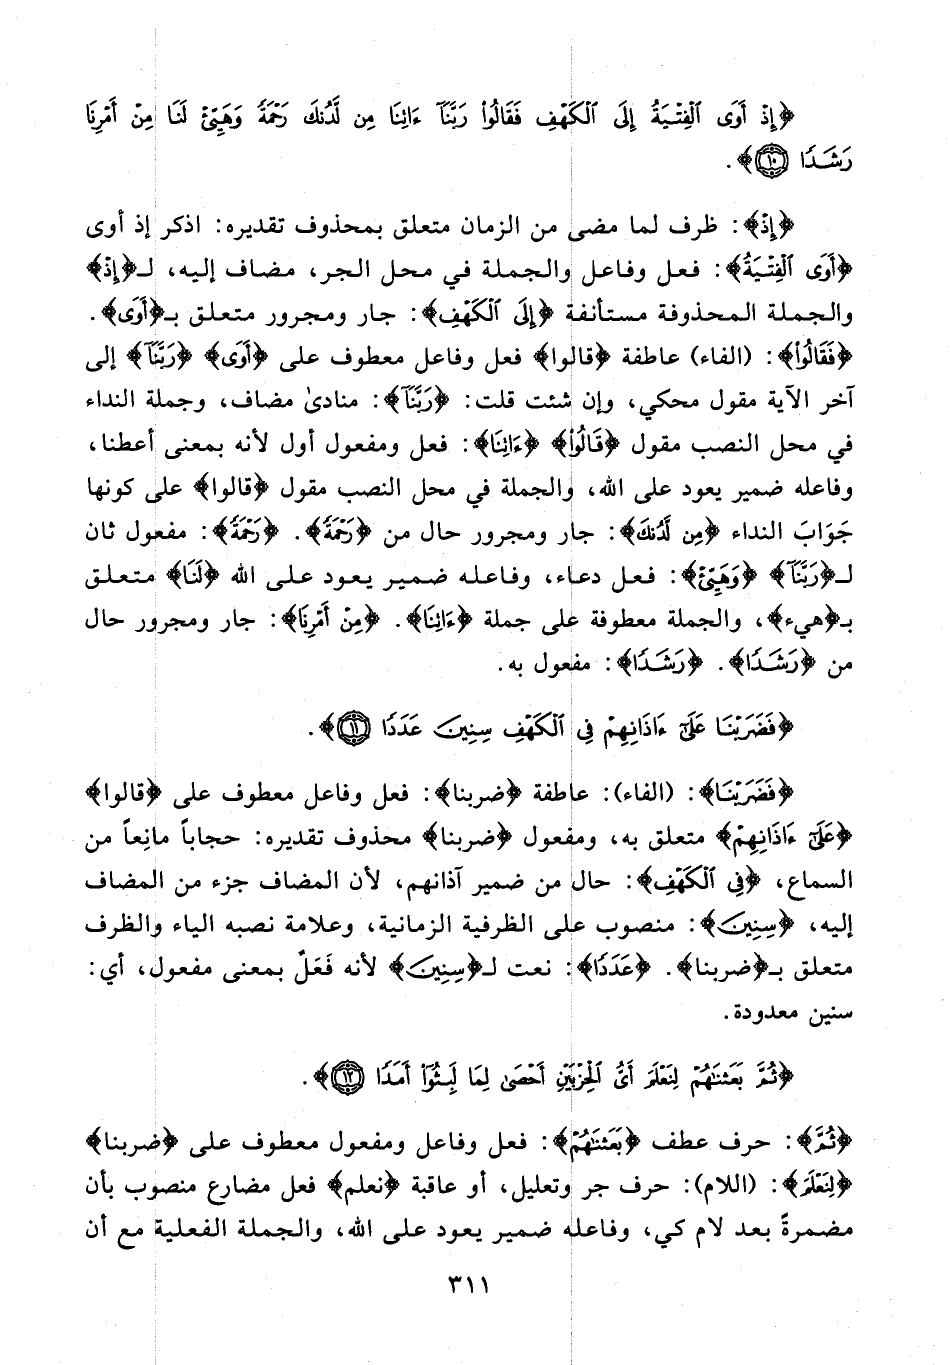 ﴿إِذْ أَوَى ٱلْفِتْيَةُ إِلَى ٱلْكَهْفِ فَقَالُوا۟ رَبَّنَآ ءَاتِنَا مِن لَّدُنكَ رَحْمَةً وَهَيِّئْ لَنَا مِنْ أَمْرِنَا
رَشَدًا ١٠﴾.
﴿إِذْ﴾: ظرف لما مضى من الزمان متعلق بمحذوف تقديره: اذكر إذ أوى
﴿أَوَى ٱلْفِتْيَةُ﴾: فعل وفاعل والجملة في محل الجر، مضاف إليه، لـ﴿إِذْ﴾
والجملة المحذوفة مستأنفة ﴿إِلَى ٱلْكَهْفِ﴾: جار ومجرور متعلق بـ﴿أَوَى﴾.
﴿فَقَالُوا۟﴾: (الفاء) عاطفة ﴿قالوا﴾ فعل وفاعل معطوف على ﴿أَوَى﴾ ﴿رَبَّنَآ﴾ إلى
آخر الآية مقول محكي، وإن شئت قلت: ﴿رَبَّنَآ﴾: منادىٰ مضاف، وجملة النداء
في محل النصب مقول ﴿قَالُوا۟﴾ ﴿ءَاتِنَا﴾: فعل ومفعول أول لأنه بمعنى أعطنا،
وفاعله ضمير يعود على الله، والجملة في محل النصب مقول ﴿قالوا﴾ على كونها
جَوَابَ النداء ﴿مِن لَّدُنكَ﴾: جار ومجرور حال من ﴿رَحْمَةً﴾. ﴿رَحْمَةً﴾: مفعول ثان
لـ﴿رَبَّنَآ﴾ ﴿وَهَيِّئْ﴾: فعل دعاء، وفاعله ضمير يعود على الله ﴿لَنَا﴾ متعلق
بـ﴿هيء﴾، والجملة معطوفة على جملة ﴿ءَاتِنَا﴾. ﴿مِنْ أَمْرِنَا﴾: جار ومجرور حال
من ﴿رَشَدًا﴾. ﴿رَشَدًا﴾: مفعول به.
﴿فَضَرَبْنَا عَلَىٰٓ ءَاذَانِهِمْ فِى ٱلْكَهْفِ سِنِينَ عَدَدًا ١١﴾.
﴿فَضَرَبْنَا﴾: (الفاء): عاطفة ﴿ضربنا﴾: فعل وفاعل معطوف على ﴿قالوا﴾
﴿عَلَىٰٓ ءَاذَانِهِمْ﴾ متعلق به، ومفعول ﴿ضربنا﴾ محذوف تقديره: حجاباً مانِعاً من
السماع، ﴿فِى ٱلْكَهْفِ﴾: حال من ضمير آذانهم، لأن المضاف جزء من المضاف
إليه، ﴿سِنِينَ﴾: منصوب على الظرفية الزمانية، وعلامة نصبه الياء والظرف
متعلق بـ﴿ضربنا﴾. ﴿عَدَدًا﴾: نعت لـ﴿سِنِينَ﴾ لأنه فَعَلٌ بمعنى مفعول، أي:
سنين معدودة.
﴿ثُمَّ بَعَثْنَٰهُمْ لِنَعْلَمَ أَىُّ ٱلْحِزْبَيْنِ أَحْصَىٰ لِمَا لَبِثُوٓا۟ أَمَدًا ١٢﴾.
﴿ثُمَّ﴾: حرف عطف ﴿بَعَثْنَٰهُمْ﴾: فعل وفاعل ومفعول معطوف على ﴿ضربنا﴾
﴿لِنَعْلَمَ﴾: (اللام): حرف جر وتعليل، أو عاقبة ﴿نعلم﴾ فعل مضارع منصوب بأن
مضمرةً بعد لام كي، وفاعله ضمير يعود على الله، والجملة الفعلية مع أن
٣١١